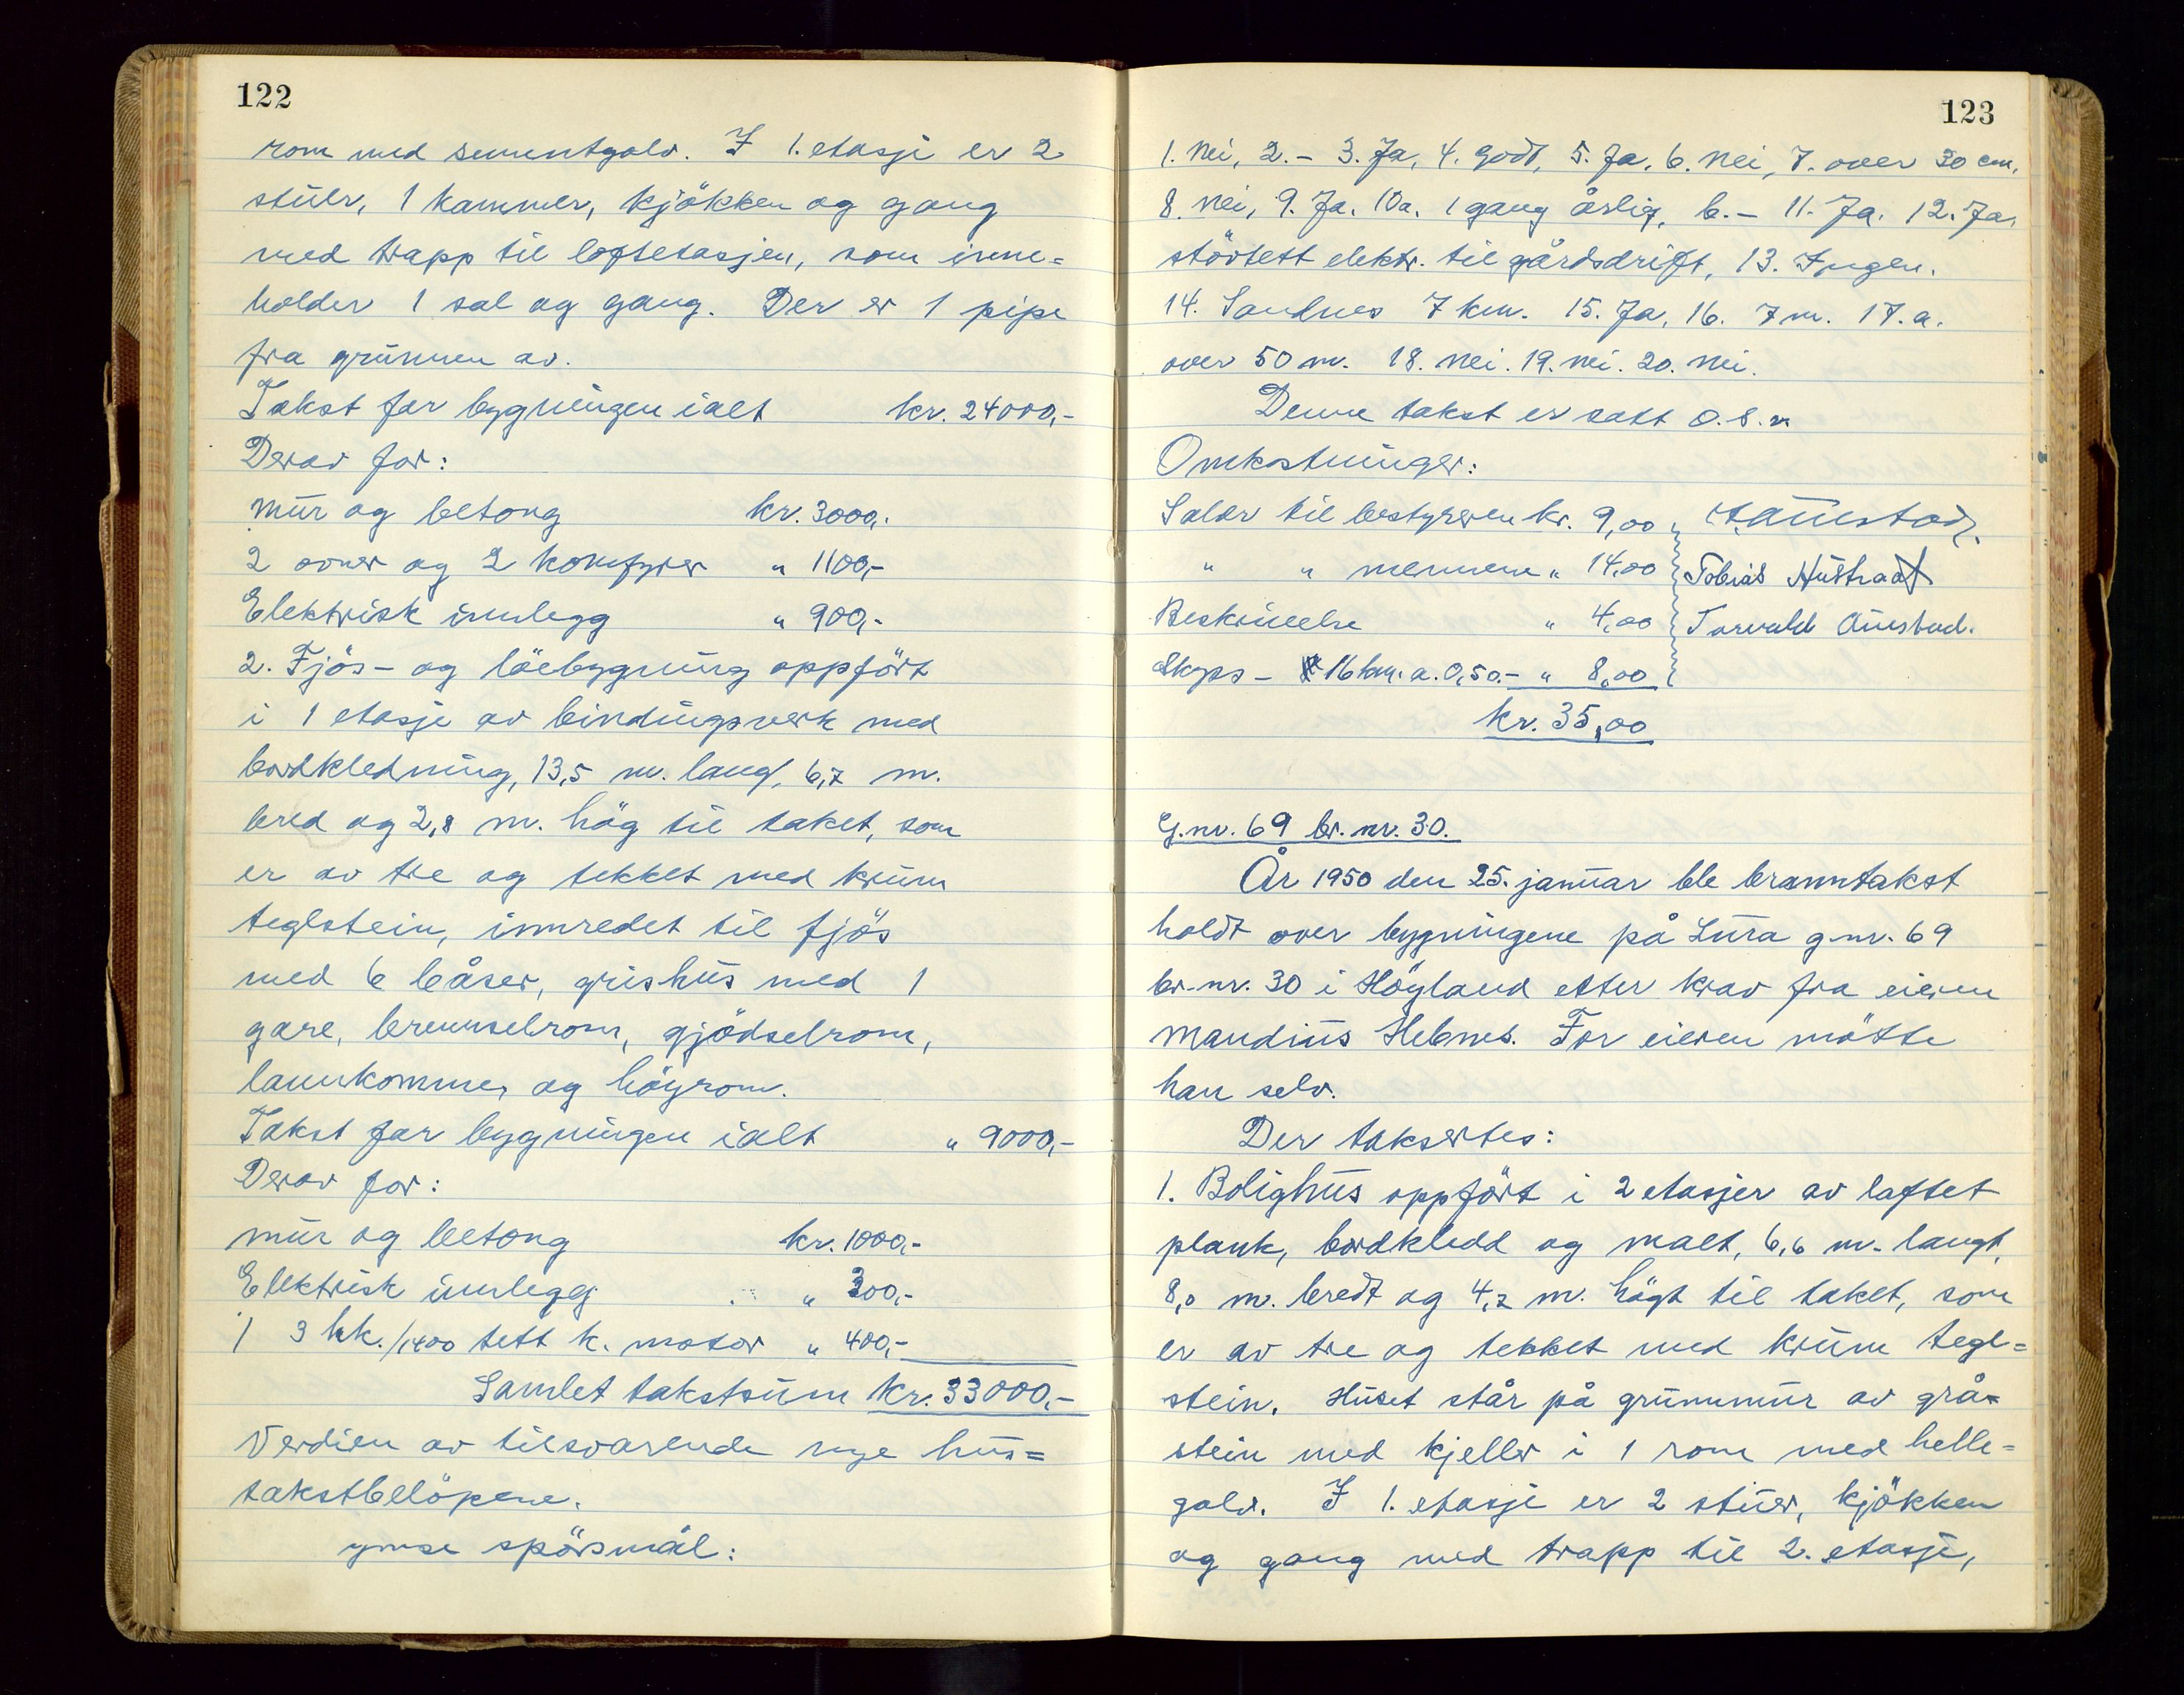 122
rom med sementgolv. I 1. etasje er 2
stuer, 1 kammer, kjökken og gang
med trapp til loftetasjen, som inne=
holder 1 sal og gang. Der er 1 pipe
fra grunnen av.
Takst for bygningen ialt kr. 24000,-
Derav for:
mur og betong kr. 3000,-
2 ovner og 2 komfyrer " 1100,-
Elektrisk innlegg " 900,-
2. Fjös- og löebygning oppfört
i 1 etasje av bindingsverk med
bordkledning, 13,5 m. lang, 6,7 m.
bred og 2,8 m. hög til taket, som
er av tre og tekket med krum
teglstein, innredet til fjös
med 6 båser, grishus med 1
gare, brennselrom, gjödselrom,
lannkommer og höyrom.
Takst for bygningen ialt " 9000,-
Derav for:
mur og betong kr. 1000,-
Elektrisk innlegg " 300,-
1 3 hk./1400 tett k. motor " 400,-
Samlet takstsum kr. 33000,-
Verdien av tilsvarende nye hus=
takstbelöpene.
ymse spörsmål:
123
1. Nei, 2. - 3. Ja, 4. godt, 5. Ja, 6. nei, 7. over 30 cm.
8. nei, 9. Ja. 10a. 1 gang årlig, b. - 11. Ja. 12. Ja,
stövtett elektr. til gårdsdrift, 13. Ingen.
14. Sandnes 7 km. 15. Ja, 16. 7 m. 17. a.
over 50 m. 18. nei. 19. nei. 20. nei.
Denne takst er satt o.s.v.
Omkostninger:
Salær til bestyreren kr. 9,00
" " mennene " 14,00 Tobias Hustradt
Beskrivelse " 4,00 Torvald Austad.
Skyss - 16 km. a. 0,50.- " 8,00
kr. 35,00
G.nr. 69 br. nr. 30.
År 1950 den 25. januar ble branntakst
holdt over bygningene på Lura g.nr. 69
br.nr. 30 i Höyland etter krav fra eieren
Mandius Hebnes. For eieren mötte
han selv.
Der taksertes:
1. Bolighus oppfört i 2 etasjer av laftet
plank, bordkledd og malt, 6,6 m. langt,
8,0 m. bredt og 4,2 m. högt til taket, som
er av tre og tekket med krum tegl=
stein. Huset står på grunnmur av grå=
stein med kjeller i 1 rom med helle=
golv. I 1. etasje er 2 stuer, kjökken
og gang med trapp til 2. etasje,